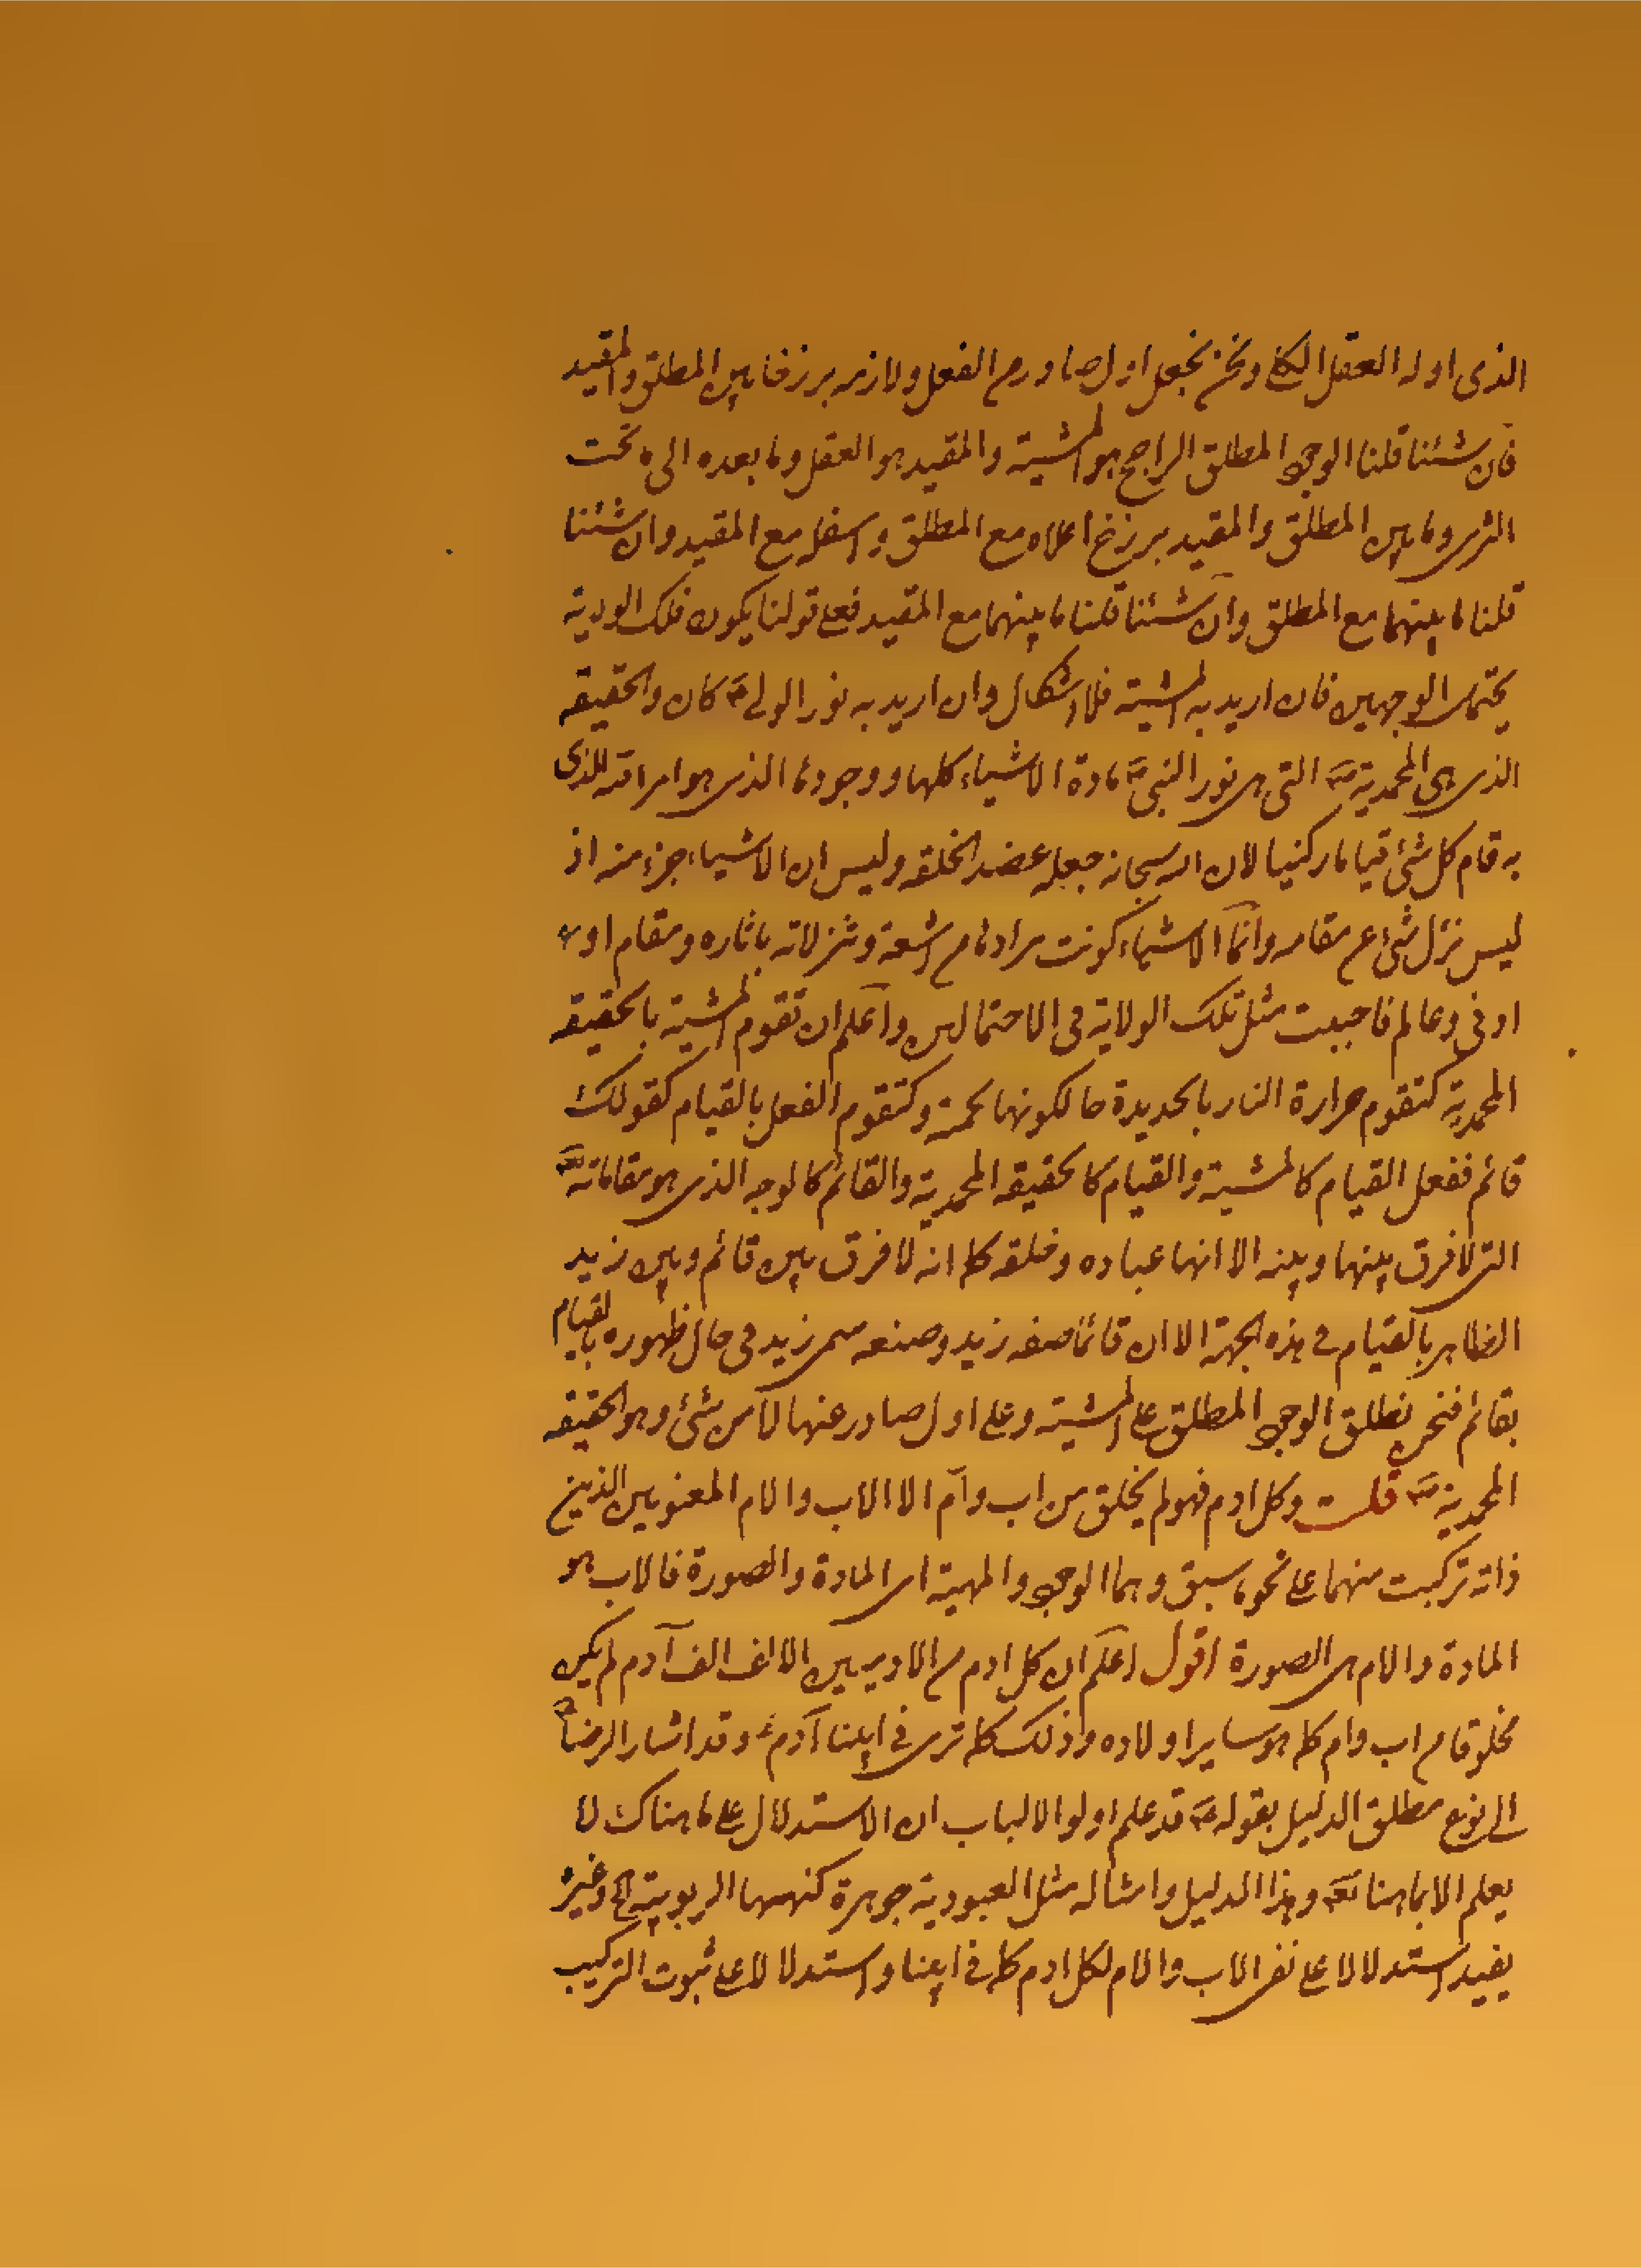 الذى اوله العقل الكلى ونحن نجعل اول صادر من الفعل ولازمه برزخا بين المطلق والمقيد
فان شئنا قلنا الوجود المطلق الراجح هو المشية والمقيد هو العقل وما بعده الى ما تحت
الثرى وما بين المطلق والمقيد برزخ اعلاه مع المطلق واسفله مع المقيد وان شئنا
قلنا ما بينهما مع المطلق وان شئنا قلنا ما بينهما مع المقيد فعلى قولنا يكون فلك الولاية
يحتمل الوجهين فان اريد به المشية فلا اشكال وان اريد به نور الولى ع كان والحقيقة
الذى هى المحمدية ص التى هى نور النبى ص مادة الاشياء كلها ووجودها الذى هو امر الله الذى
به قام كل شئ قياما ركنيا لان الله سبحانه جعله عضد الخلقه وليس ان الاشياء جزء منه اذ
ليس نزل شئ عن مقامه وانما الاشياء كونت موادها من اشعة وتنزلاته باثاره ومقام او
ادنى وعالم فاحببت مثل تلك الولاية فى الاحتمالين واعلم ان تقوم المشية بالحقيقة
المحمدية كتقوم حرارة النار بالحديدة حالكونها محمية وكتقوم الفعل بالقيام كقولك
قائم ففعل القيام كالمشية والقيام كالحقيقة المحمدية والقائم كالوجه الذى هو مقاماته
التى لا فرق بينها وبينه الا انها عباده وخلقه كما انه لا فرق بين قائم وبين زيد
الظاهر بالقيام فى هذه الجهة الا ان قائما صفة زيد وصنعه سمى زيد فى حال ظهوره بالقيام
بقائم فنحن نطلق الوجود المطلق على المشية وعلى اول صادر عنها لا من شئ وهو الحقيقة
المحمدية ص قلت وكل ادم فهو لم يخلق من اب وام الا الاب والام المعنويين الذين
ذاته تركبت منهما على نحو ما سبق وهما الوجود والمهية اى المادة والصورة فالاب هو
المادة والام هى الصورة اقول اعلم ان كل ادم من الادميين الالف الف آدم لم يكن
مخلوقا من اب وام كما هو ساير اولاده وذلك كما ترى فى ابينا آدم ع وقد اشار الرضا ع
الى نوع مطلق الدليل بقوله ع قد علم اولوا الالباب ان الاستدلال على ما هناك لا
يعلم الا بما هنا وهذا الدليل وامثاله مثل العبودية جوهرة كنهها الربوبية الخ وغيره
يفيد استدلالا على نفى الاب والام لكل ادم كما فى ابينا واستدلالا على ثبوت التركيب